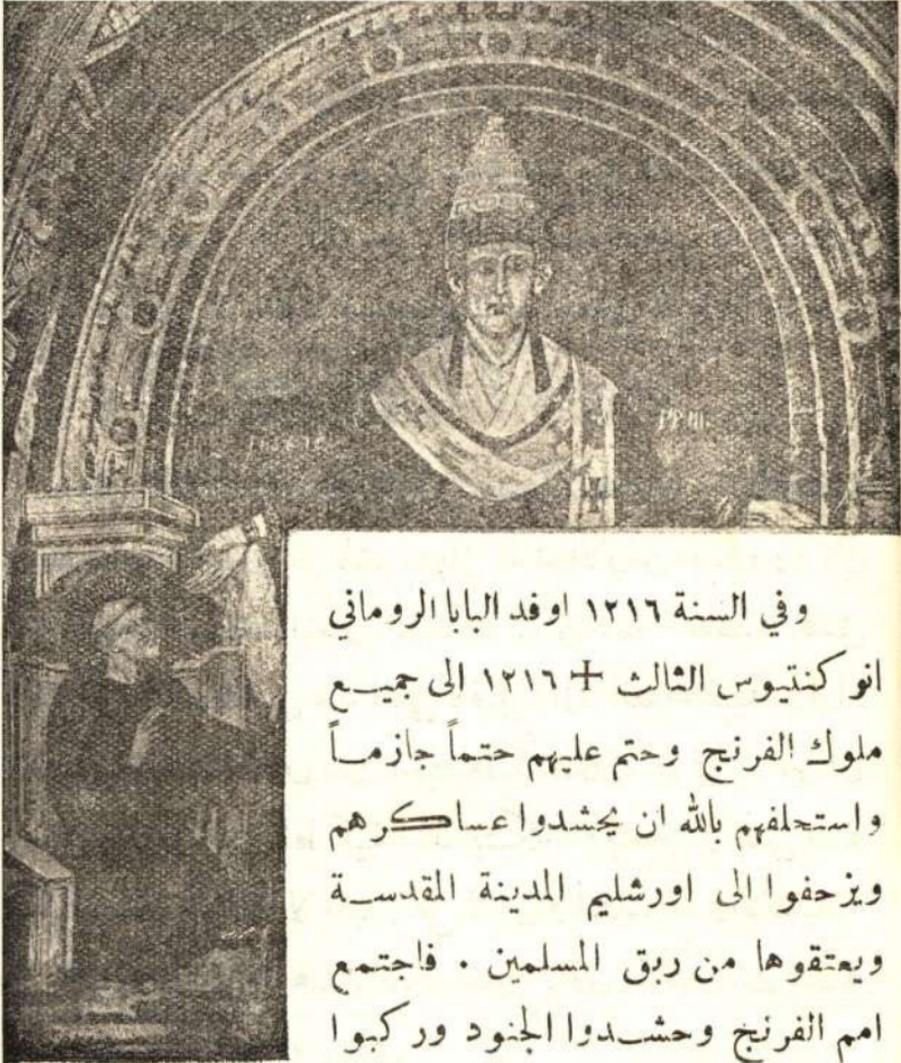 وفي السنة ١٢١٦ اوفد البابا الروماني
انو كنتيوس الثالث + ١٢١٦ الى جميع
ملوك الفرنج وحتم عليهم حتماً جازمـاً
واستحلفهم بالله ان يحشدوا عساكرهم
ويزحفوا الى اورشليم المدينة المقدسـة
ويعتقوها من ربق المسلمين . فاجتمع
امم الفرنج وحشـدوا الجنود وركبوا